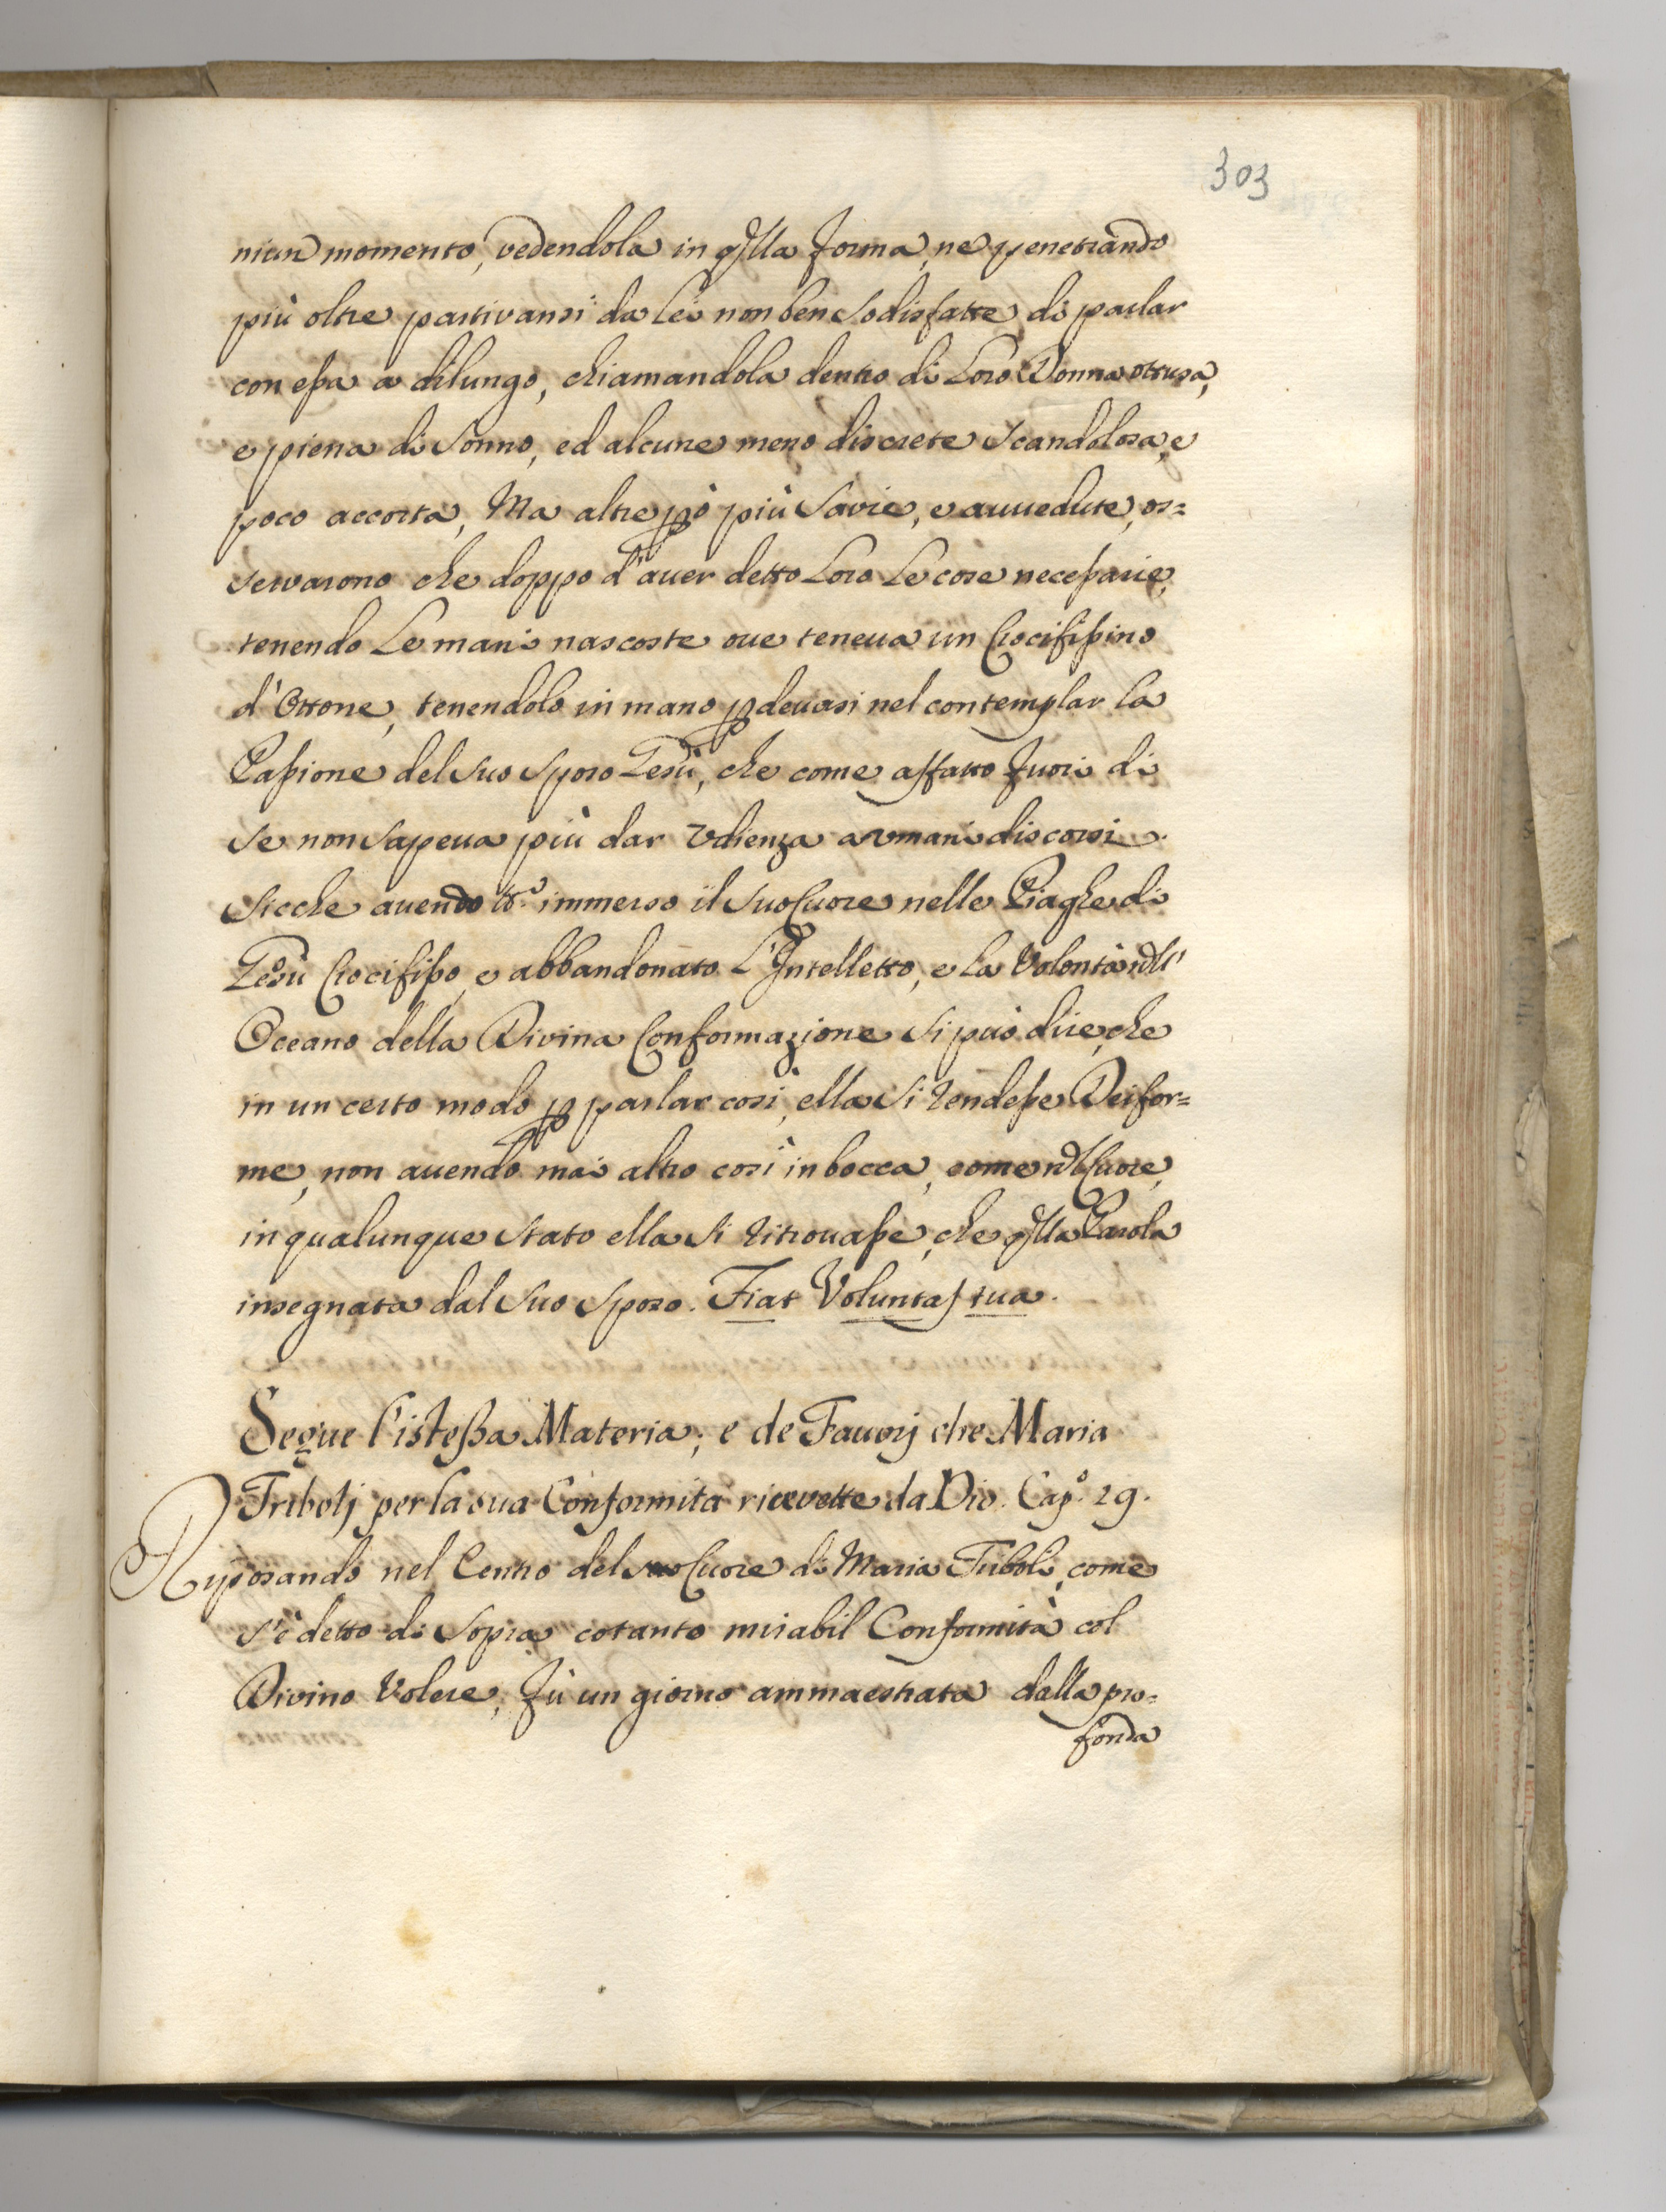 303
niun momento, vedendola in qlla forma, ne penetrando
più oltre partivansi da Lei non ben Sodisfatte di parlar
con eßa a dilungo, chiamandola dentro di Loro Donna ottusa,
e piena di Sonno, ed alcune meno discrete Scandolosa, e
poco accorta, Ma altre pò più Savie, e auuedute, os=
servarono che doppo d'auer detto Loro Le cose neceßarie,
tenendo Le mani nascoste oue teneua un Crocifißino
d'Ottone, tenendolo in mano pdeuasi nel contemplar la
Paßione del Suo Sposo Gesù, che come affatto fuori di
Se non Sapeua più dar Vdienza a vmani discorsi.
Sicche auendo tto. immerso il Suo Cuore nelle Piaghe di
Gesù Crocifißo, e abbandonato L'Intelletto, e la Volontà nell'
Oceano della Divina Conformazione Si può dire, che
in un certo modo p parlar così, ella Si rendeße Deifor=
me, non auendo mai altro così in bocca, come nel Cuore,
in qualunque Stato ella Si ritrouaße, che qlla Parola
insegnata dal Suo Sposo. Fiat Voluntas tua.
Segue l'isteßa Materia; e de Fauorj che Maria
Tribolj per la sua Conformità ricevette da Dio. Cap.º 29.
Riposando nel Centro del Cuore di Maria Triboli, come
s'è detto di Sopra cotanto mirabil Conformità col
Divino Volere, fù un giorno ammaestrata dalla pro=
fonda